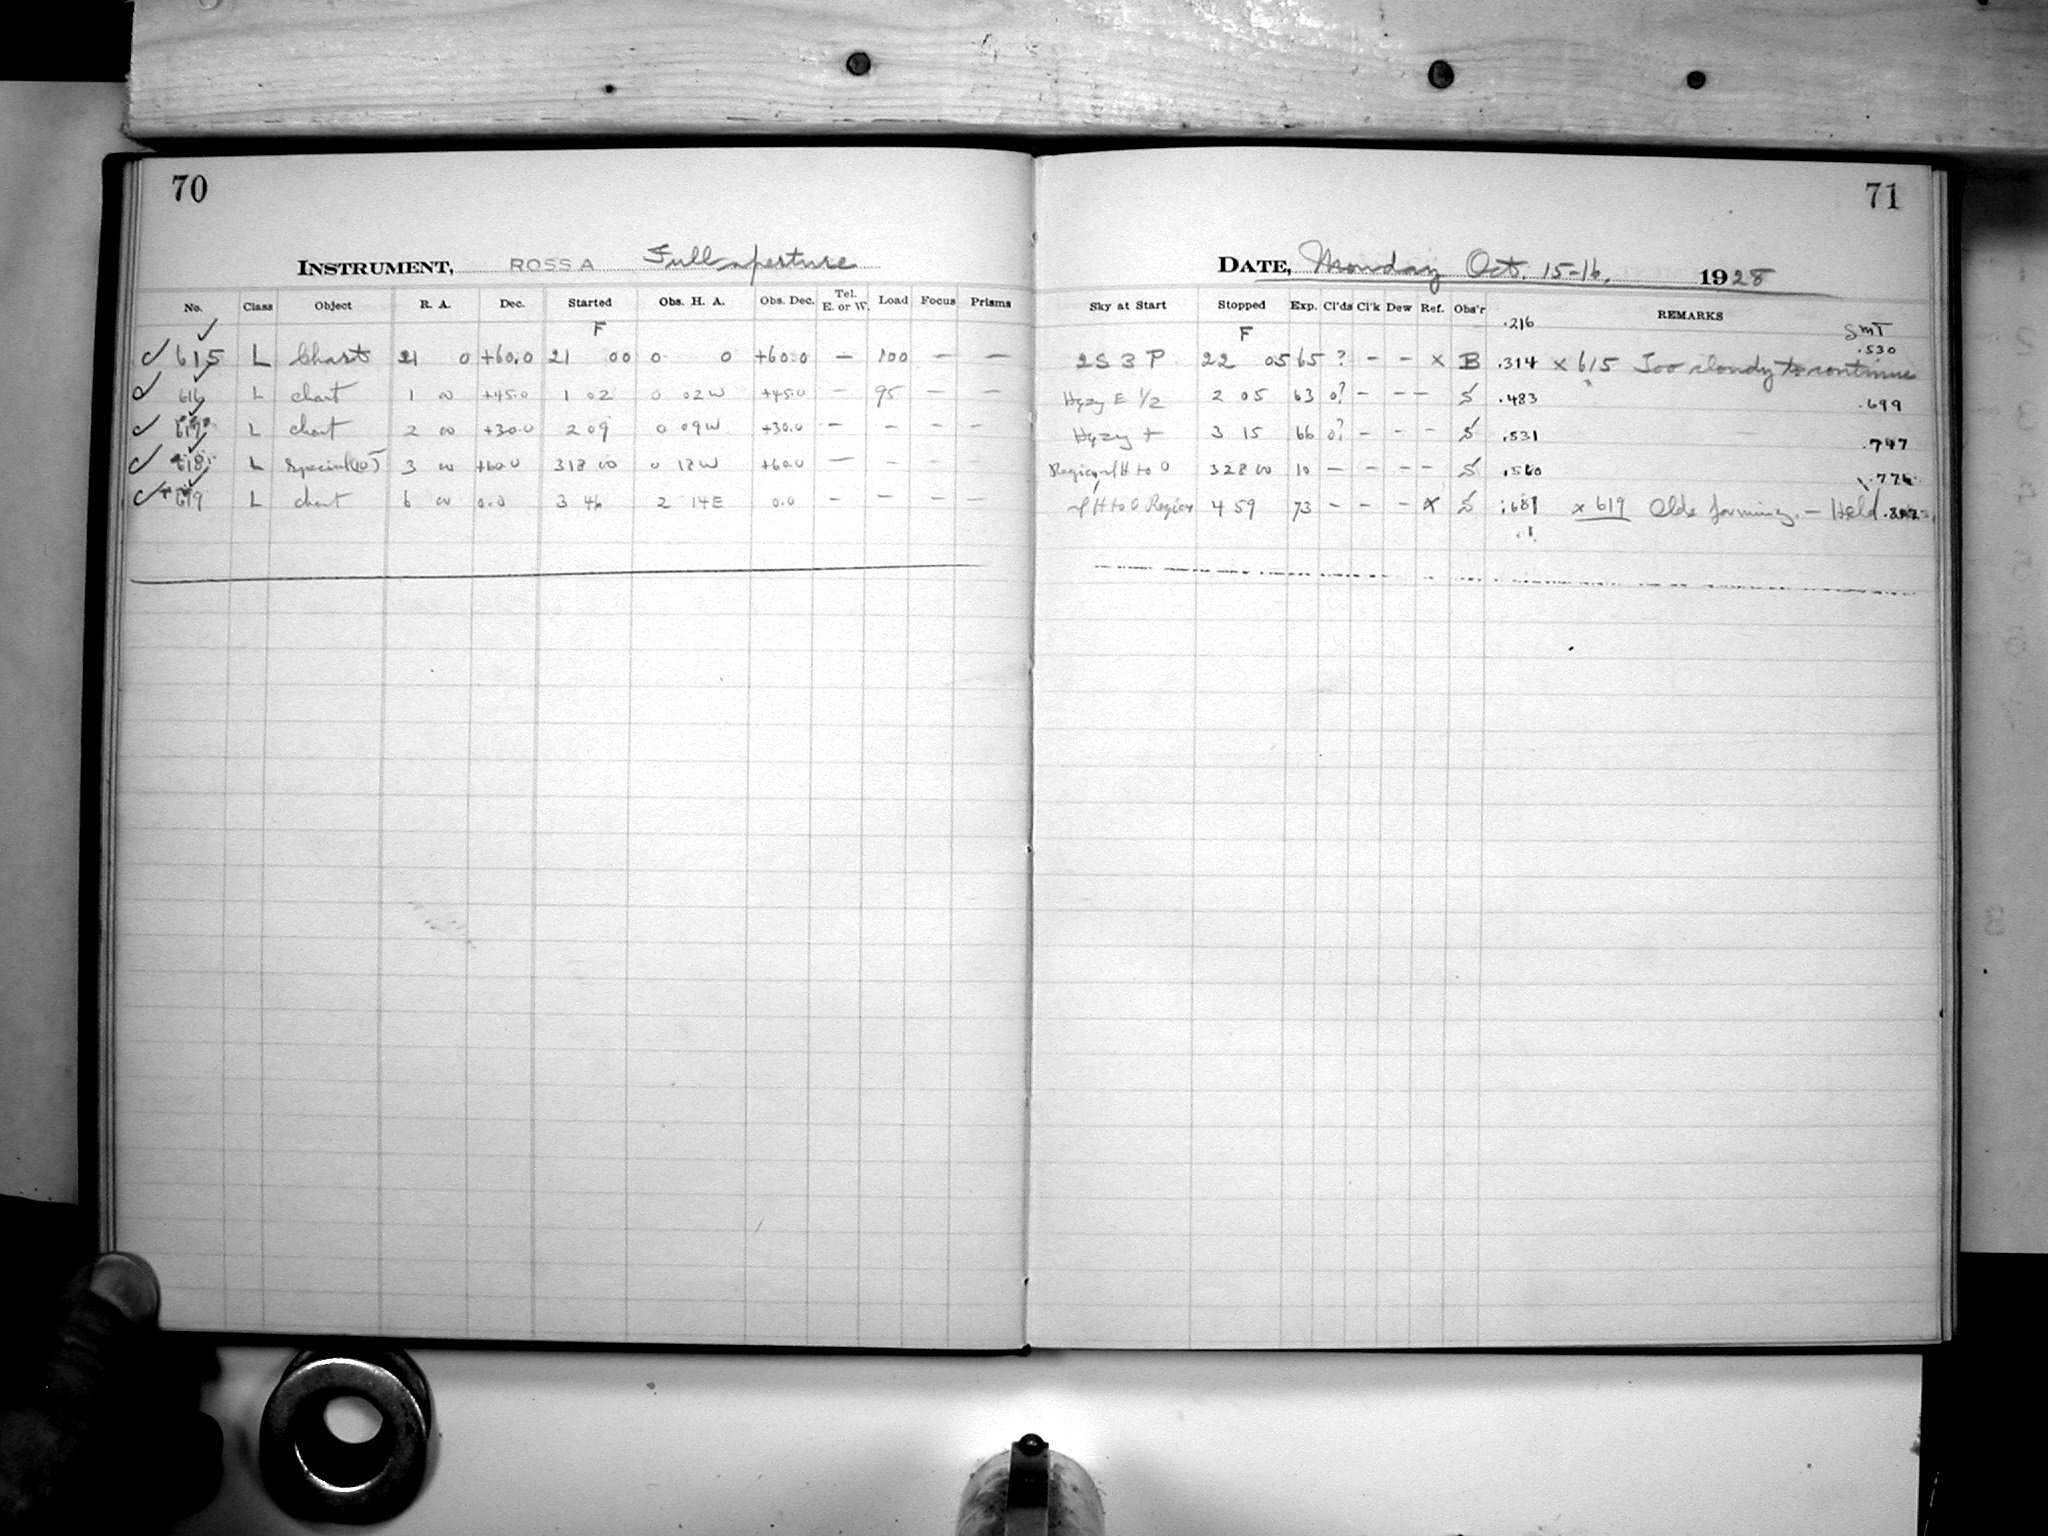 70
71
INSTRUMENT, ROSS A Full aperture
DATE, Monday Oct. 15-16, 1928
No. Class Object R. A. Dec. Started Obs. H. A. Obs. Dec. Tel. E. or W. Load Focus Prisms
Sky at Start Stopped Exp. Cl'ds Cl'k Dew Ref. Obs'r .216 REMARKS GMT
F F .530
✓ 615 L Chart 21 0 +60.0 21 00 0 0 +60.0 — 100 — — 2S 3 P 22 05 65 ? - - x B .314 x 615 Too cloudy to continue
✓ 616 L chart 1 00 +45.0 1 02 0 02W +45.0 — 95 — — Hazy E 1/2 2 05 63 0? - - - S .483 .699
✓ 617 L chart 2 00 +30.0 2 09 0 09W +30.0 — - - - Hazy + 3 15 66 0? - - - S .531 .747
✓ 618 L Special (10) 3 00 +60.0 318 00 0 18W +60.0 — - - - Region H to O 328 00 10 - - - - S .560 .776
✓ 619 L chart 6 00 0.0 3 46 2 14E 0.0 — - - - H to O Region 4 59 73 - - - x S .681 x 619 Clds forming. — Held